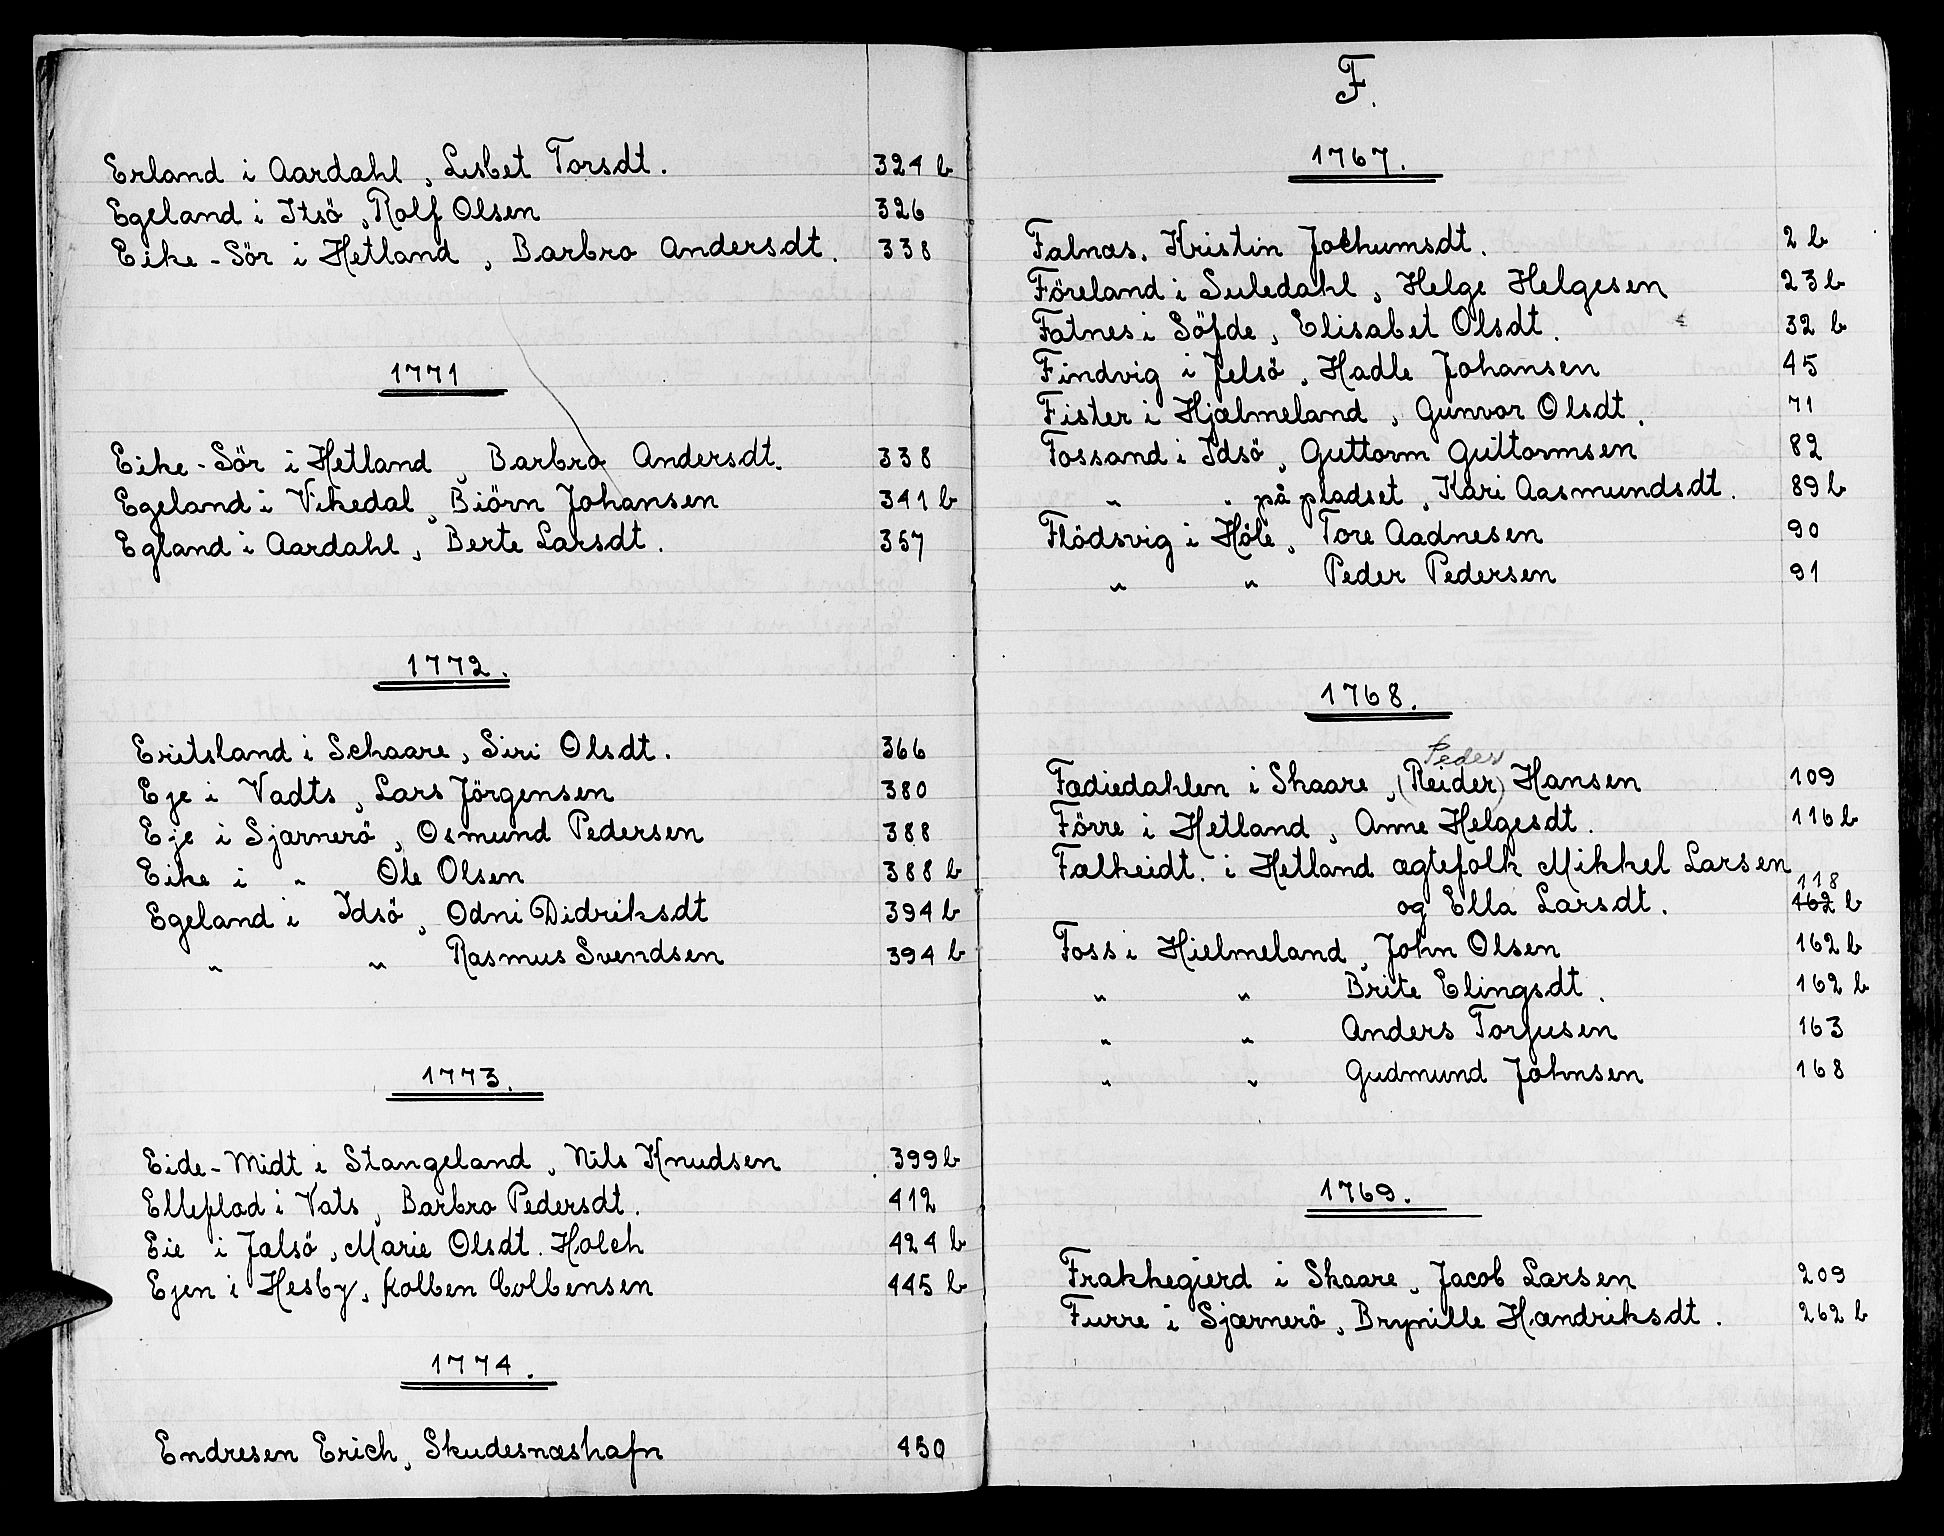 Erland i Aardahl, Lisbet Torsdt. 324 b
Egeland i Itsö, Rolf Olsen 326
Eike-Sör i Hetland, Barbro Andersdt. 338
1771
Eike-Sör i Hetland, Barbro Andersdt. 338
Egeland i Vikedal, Biörn Johansen 341 b
Egland i Aardahl, Berte Larsdt. 357
1772.
Eritsland i Schaare, Siri Olsdt. 366
Eje i Vadts, Lars Jörgensen 380
Eje i Sjærnerö, Osmund Pedersen 388
Eike i " Ole Olsen 388 b
Egeland i Idsö, Odni Didriksdt 394 b
" " Rasmus Svendsen 394 b
1773.
Eide-Midt i Stangeland, Nils Knudsen 399 b
Elleflad i Vats, Barbro Pedersdt. 412
Eie i Jalsö, Marie Olsdt. Holch 424 b
Ejen i Hesby, kolben Colbensen 445 b
1774.
Endresen Erich, Skudesnæshafn 450
F.
1767.
Falnæs. Kristin Jochumsdt. 2 b
Föreland i Suledahl, Helge Helgesen 23 b
Fatnes i Söfde, Elisabet Olsdt. 32 b
Findvig i Jelsö, Hadle Johansen 45
Fister i Hjælmeland, Gunvor Olsdt. 71
Fossand i Idsö, Guttorm Guttormsen 82
" " på pladset, Kari Aasmundsdt. 89 b
Flödsvig i Höle, Tore Aadnesen 90
" " Peder Pedersen 91
1768.
Peder
Fædiedahlen i Skaare, (Reider) Hansen 109
Förre i Hetland, Anne Helgesdt. 116 b
Falkeidt. i Hetland ægtefolk Mikkel Larsen
118
og Ella Larsdt. 162 b
Foss i Hielmeland, John Olsen 162 b
" " Brite Elingsdt. 162 b
" " Anders Torjusen 163
" " Gudmund Johnsen 168
1769.
Frakkegierd i Skaare, Jacob Larsen 209
Furre i Sjærnerö, Brynille Hændriksdt. 262 b